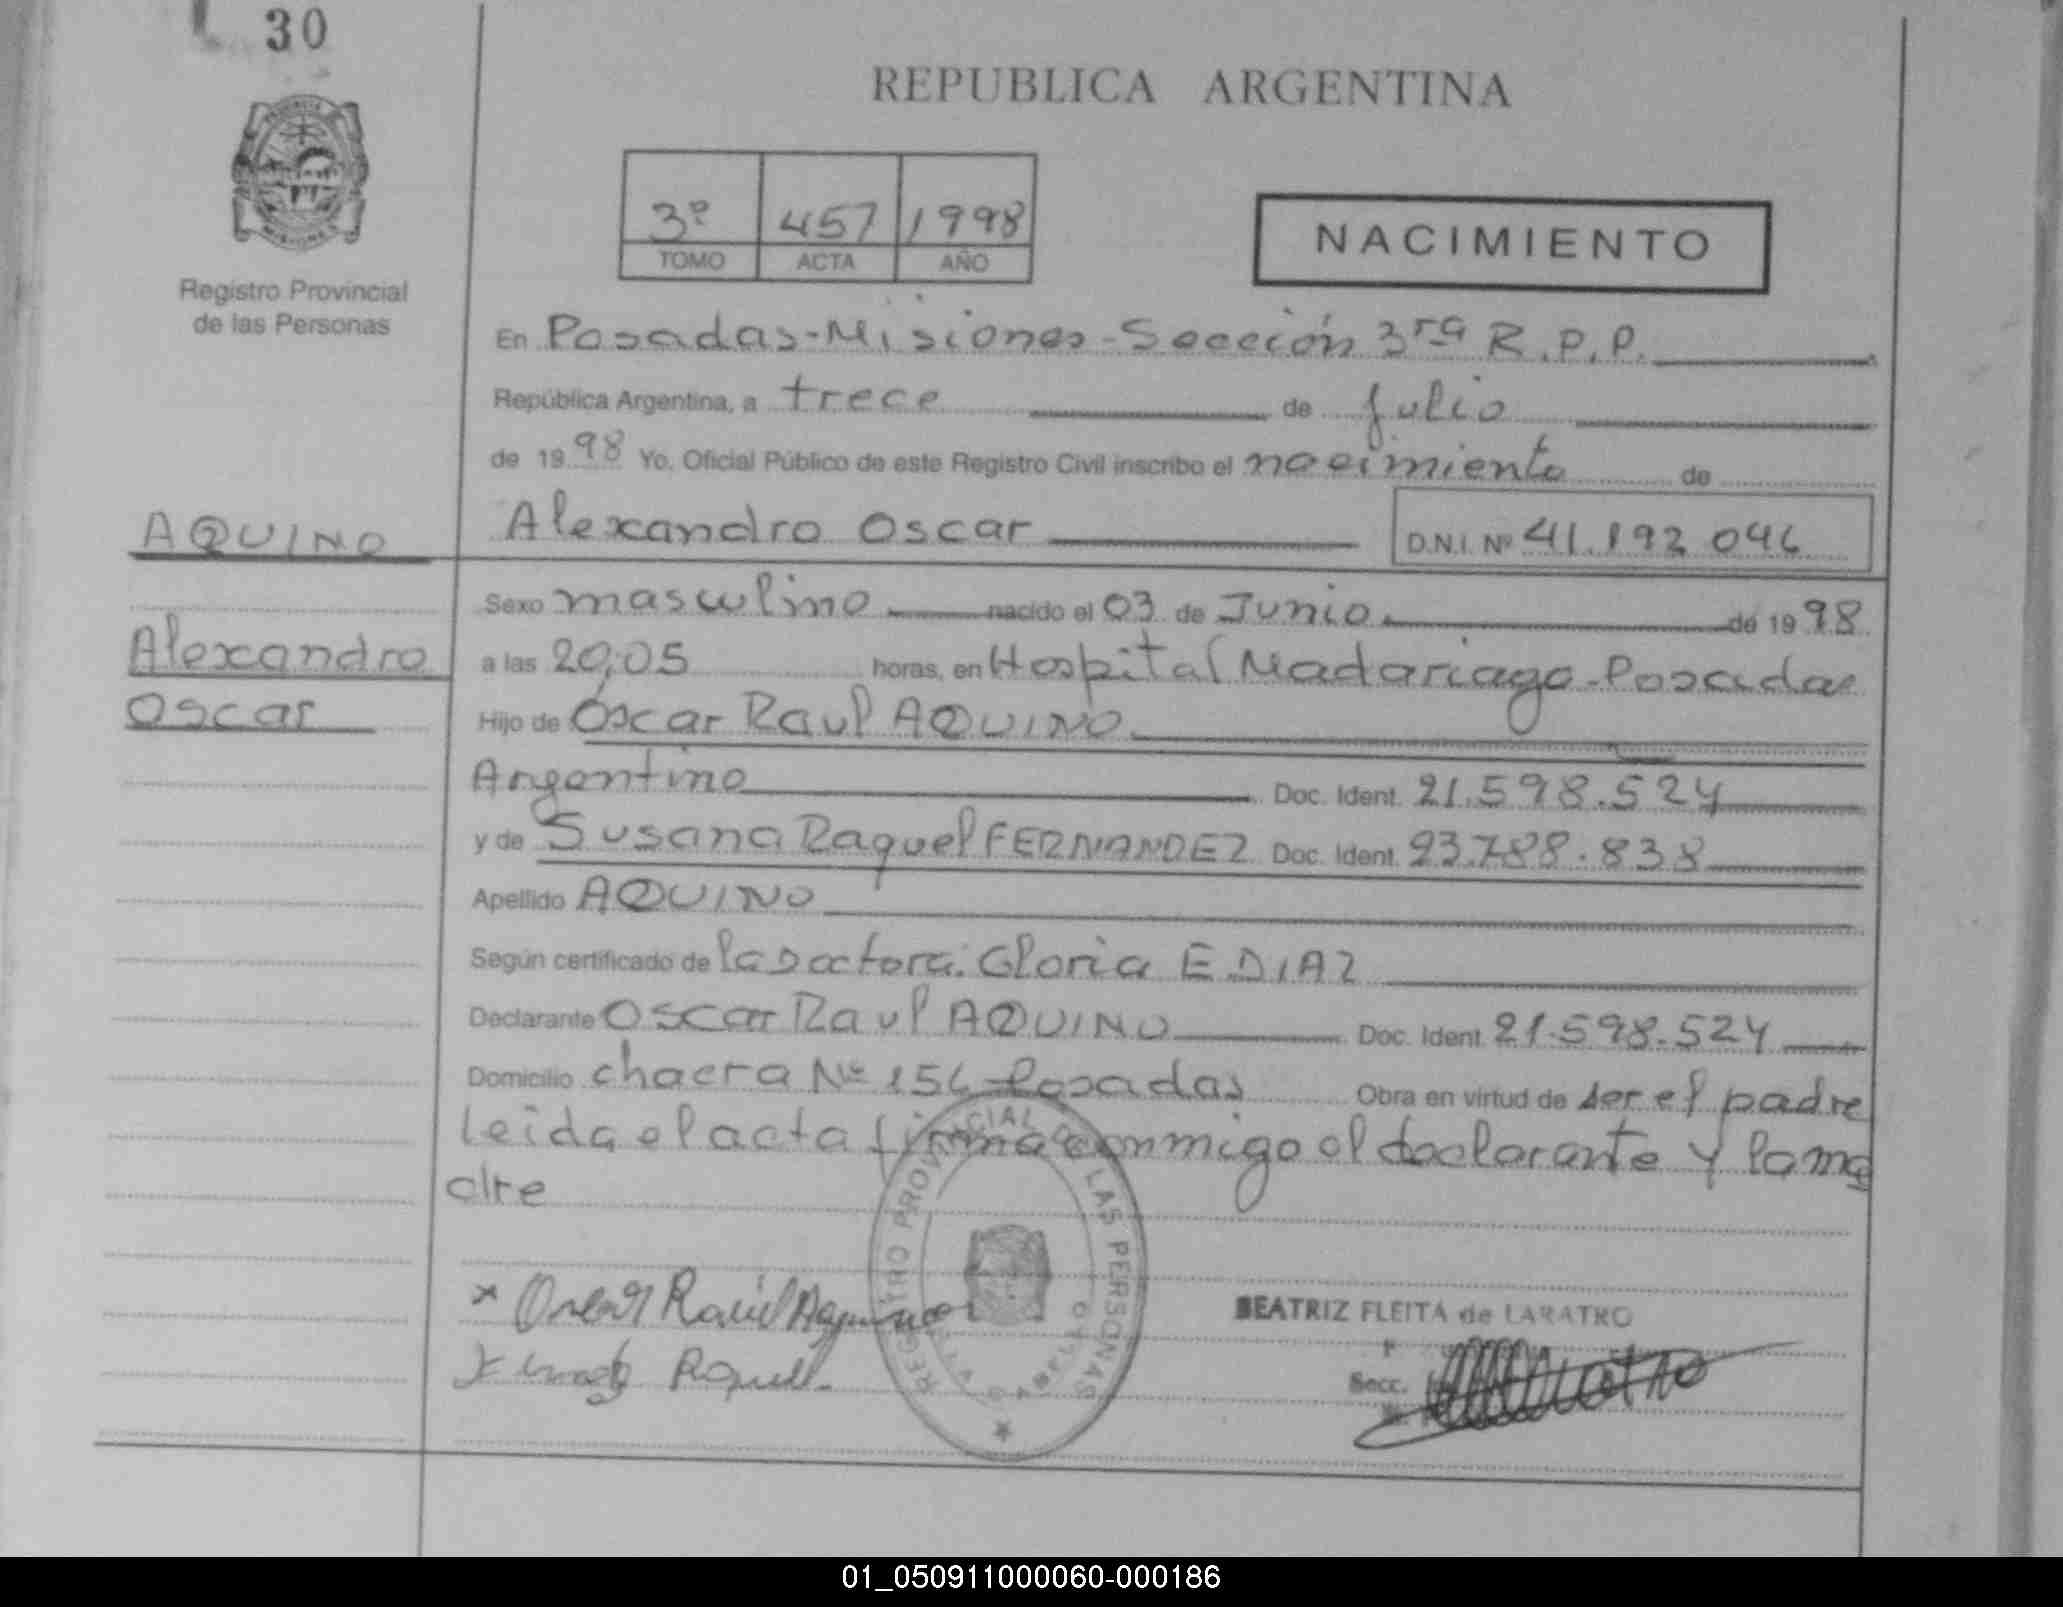 30
REPUBLICA ARGENTINA
3º 457 1998
TOMO ACTA AÑO
NACIMIENTO
Registro Provincial
de las Personas
En Posadas-Misiones-Sección 3ra R.P.P.
República Argentina, a trece de julio
de 1998 Yo, Oficial Público de este Registro Civil inscribo el nacimiento de
AQUINO
Alexandro Oscar D.N.I. Nº 41.192.046
Sexo masculino nacido el 03 de Junio de 1998
Alexandro
a las 20,05 horas, en Hospital Madariaga-Posadas
Oscar
Hijo de Oscar Raul AQUINO
Argentino Doc. Ident. 21.598.524
y de Susana Raquel FERNANDEZ Doc. Ident. 23.788.838
Apellido AQUINO
Según certificado de la Doctora: Gloria E DIAZ
Declarante Oscar Raul AQUINO Doc. Ident. 21.598.524
Domicilio chacra Nº 156-Posadas Obra en virtud de ser el padre
Leida el acta firma conmigo el declarante y la ma
dre
REGISTRO PROVINCIAL DE LAS PERSONAS
Oscar Raúl Aquino
Raquel
BEATRIZ FLEITA de LARATRO
Secc.
01_050911000060-000186